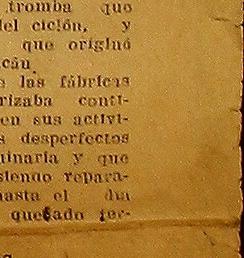 tromba que
del ciclón, y
que originó
e las fábricas
rizaba conti-
en sus activi-
s desperfectos
uinaria y que
siendo repara-
hasta el día
quedado ter-